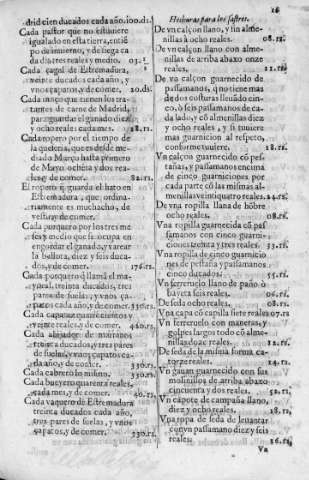 drid cien ducados cada año. 100.di.
Cada pastor que no estuuiere
igualado en esta tierra, entiẽ
po de inuierno, y de siega ca
da dia tres reales y medio. 03.
Cada çagal de Estremadura,
veinte ducados cada año, y
vnos çapatos, y de comer. 20.ds.
Cada moço que tienen los tra-
tantes de carne de Madrid,
para guardar el ganado diez
y ocho reales cada mes. 18.rs.
Cada ropero por el tiempo de
la queseria, que es desde me-
diado Março hasta primero
de Mayo ochẽta y dos rea-
les, de comer. 82.rs.
El ropero q̃ guarda el hato en
Estremadura, que ordina-
riamente es muchacho, de
vestir, y de comer.
Cada porquero por los tres me
ses y medio que se ocupa en
engordar el ganado, y varear
la bellota, diez y seis duca-
dos, y de comer. 176.rs.
Cada porquero q̃ llamã el ma-
yoral, treinta ducados, tres
pares de suelas, y vnos ça-
patos cada año, y de comer. 330.rs.
y veinte reales, y de comer. 460.rs.
treinta ducados, y tres pares
de suelas, y vnos çapatos ca-
da año, y de comer. 330.rs.
Cada cabrero lo mismo. 330.rs.
Cada bueyero quarenta reales,
cada mes, y de comer. 40.rs.
Cada vaquero de Estremadura
treinta ducados cada año,
tres pares de suelas, y vnos
çapatos, y de comer. 330.rs.
26
Hechuras para los sastres.
De vn calçon llano, y sin alme-
nillas a ocho reales. 08.rs.
De vn calçon llano con alme-
nillas de arriba abaxo onze
reales. 11.rs.
De vn calçon guarnecido de
passamanos, q̃ no tiene mas
de dos costuras lleuãdo cin-
co, ò seis passamanos de ca
da lado, y cõ almenillas diez
y ocho reales, y si tuuiere
mas guarnicion al respeto,
conforme tuuiere. 18.rs.
Vn calçon guarnecido cõ pes-
tañas, y passamanos encima
de cinco guarniciones por
cada parte cõ las mismas al-
menillas veintiquatro reales. 24.rs.
De vna ropilla llana de hõbre
ocho reales. 08.rs.
Vna ropilla guarnecida cõ pas-
samanos con cinco guarni-
ciones treinta y tres reales. 33.rs.
Vna ropilla de cinco guarnicio
nes de pestaña y passamanos
cinco ducados. 55.rs.
Vn ferreruelo llano de paño ò
bayeta seis reales. 06.rs.
De seda ocho reales. 08.rs.
Vna capa cõ capilla siete reales 07.rs
Vn ferreruelo con maneras, y
golpes largos todo cõ alme-
nillas doze reales. 12.rs.
De seda de la misma forma ca-
torze reales. 14.rs.
Vn gauan guarnecido con sus
molinillos de arriba abaxo
cincuenta y dos reales. 52.rs.
Vn capote de campaña llano,
diez y ocho reales. 18.rs.
Vna ropa de seda de leuantar
con vn passamano diez y seis
reales. 16.rs.
Vn